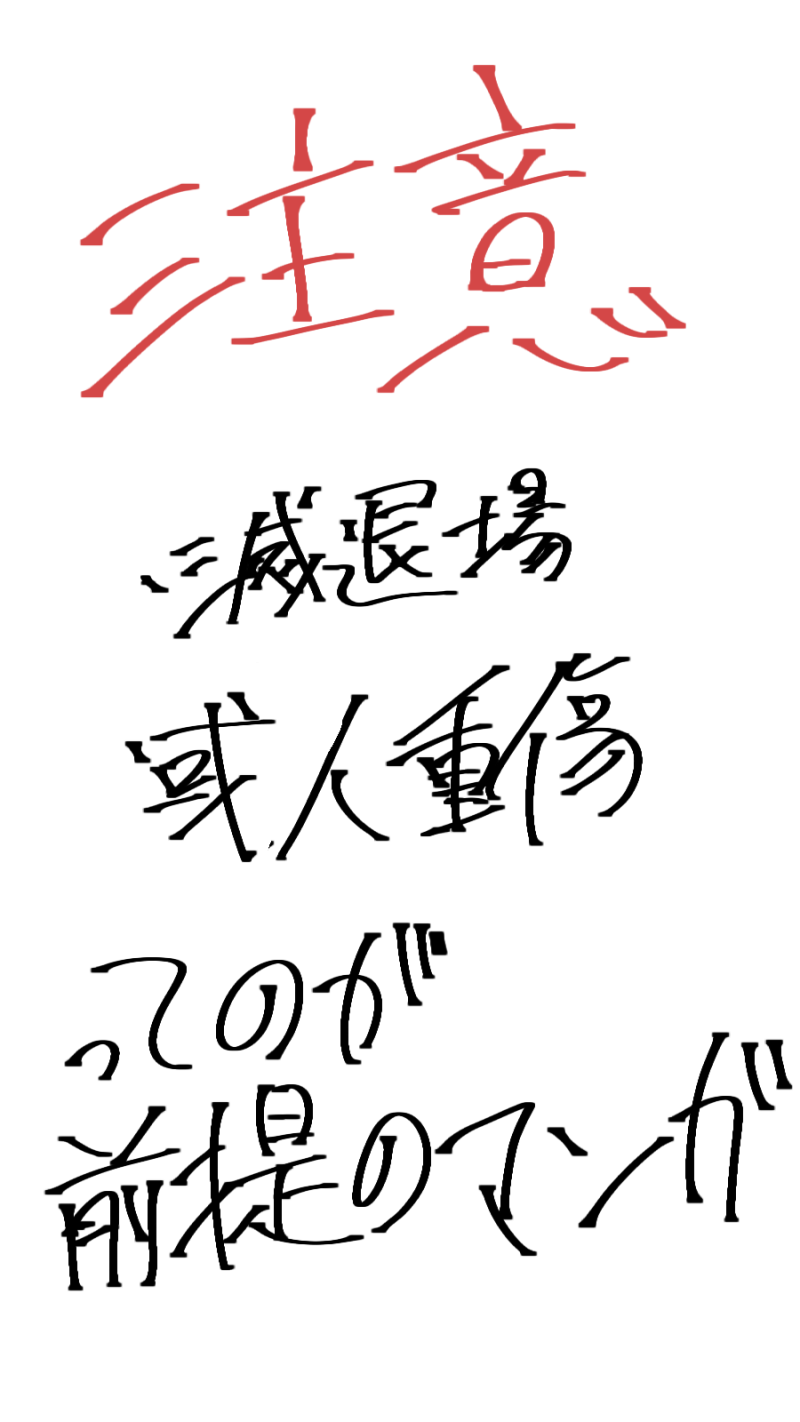 注意
滅退場
或人重傷
ってのが
前提のマンガ